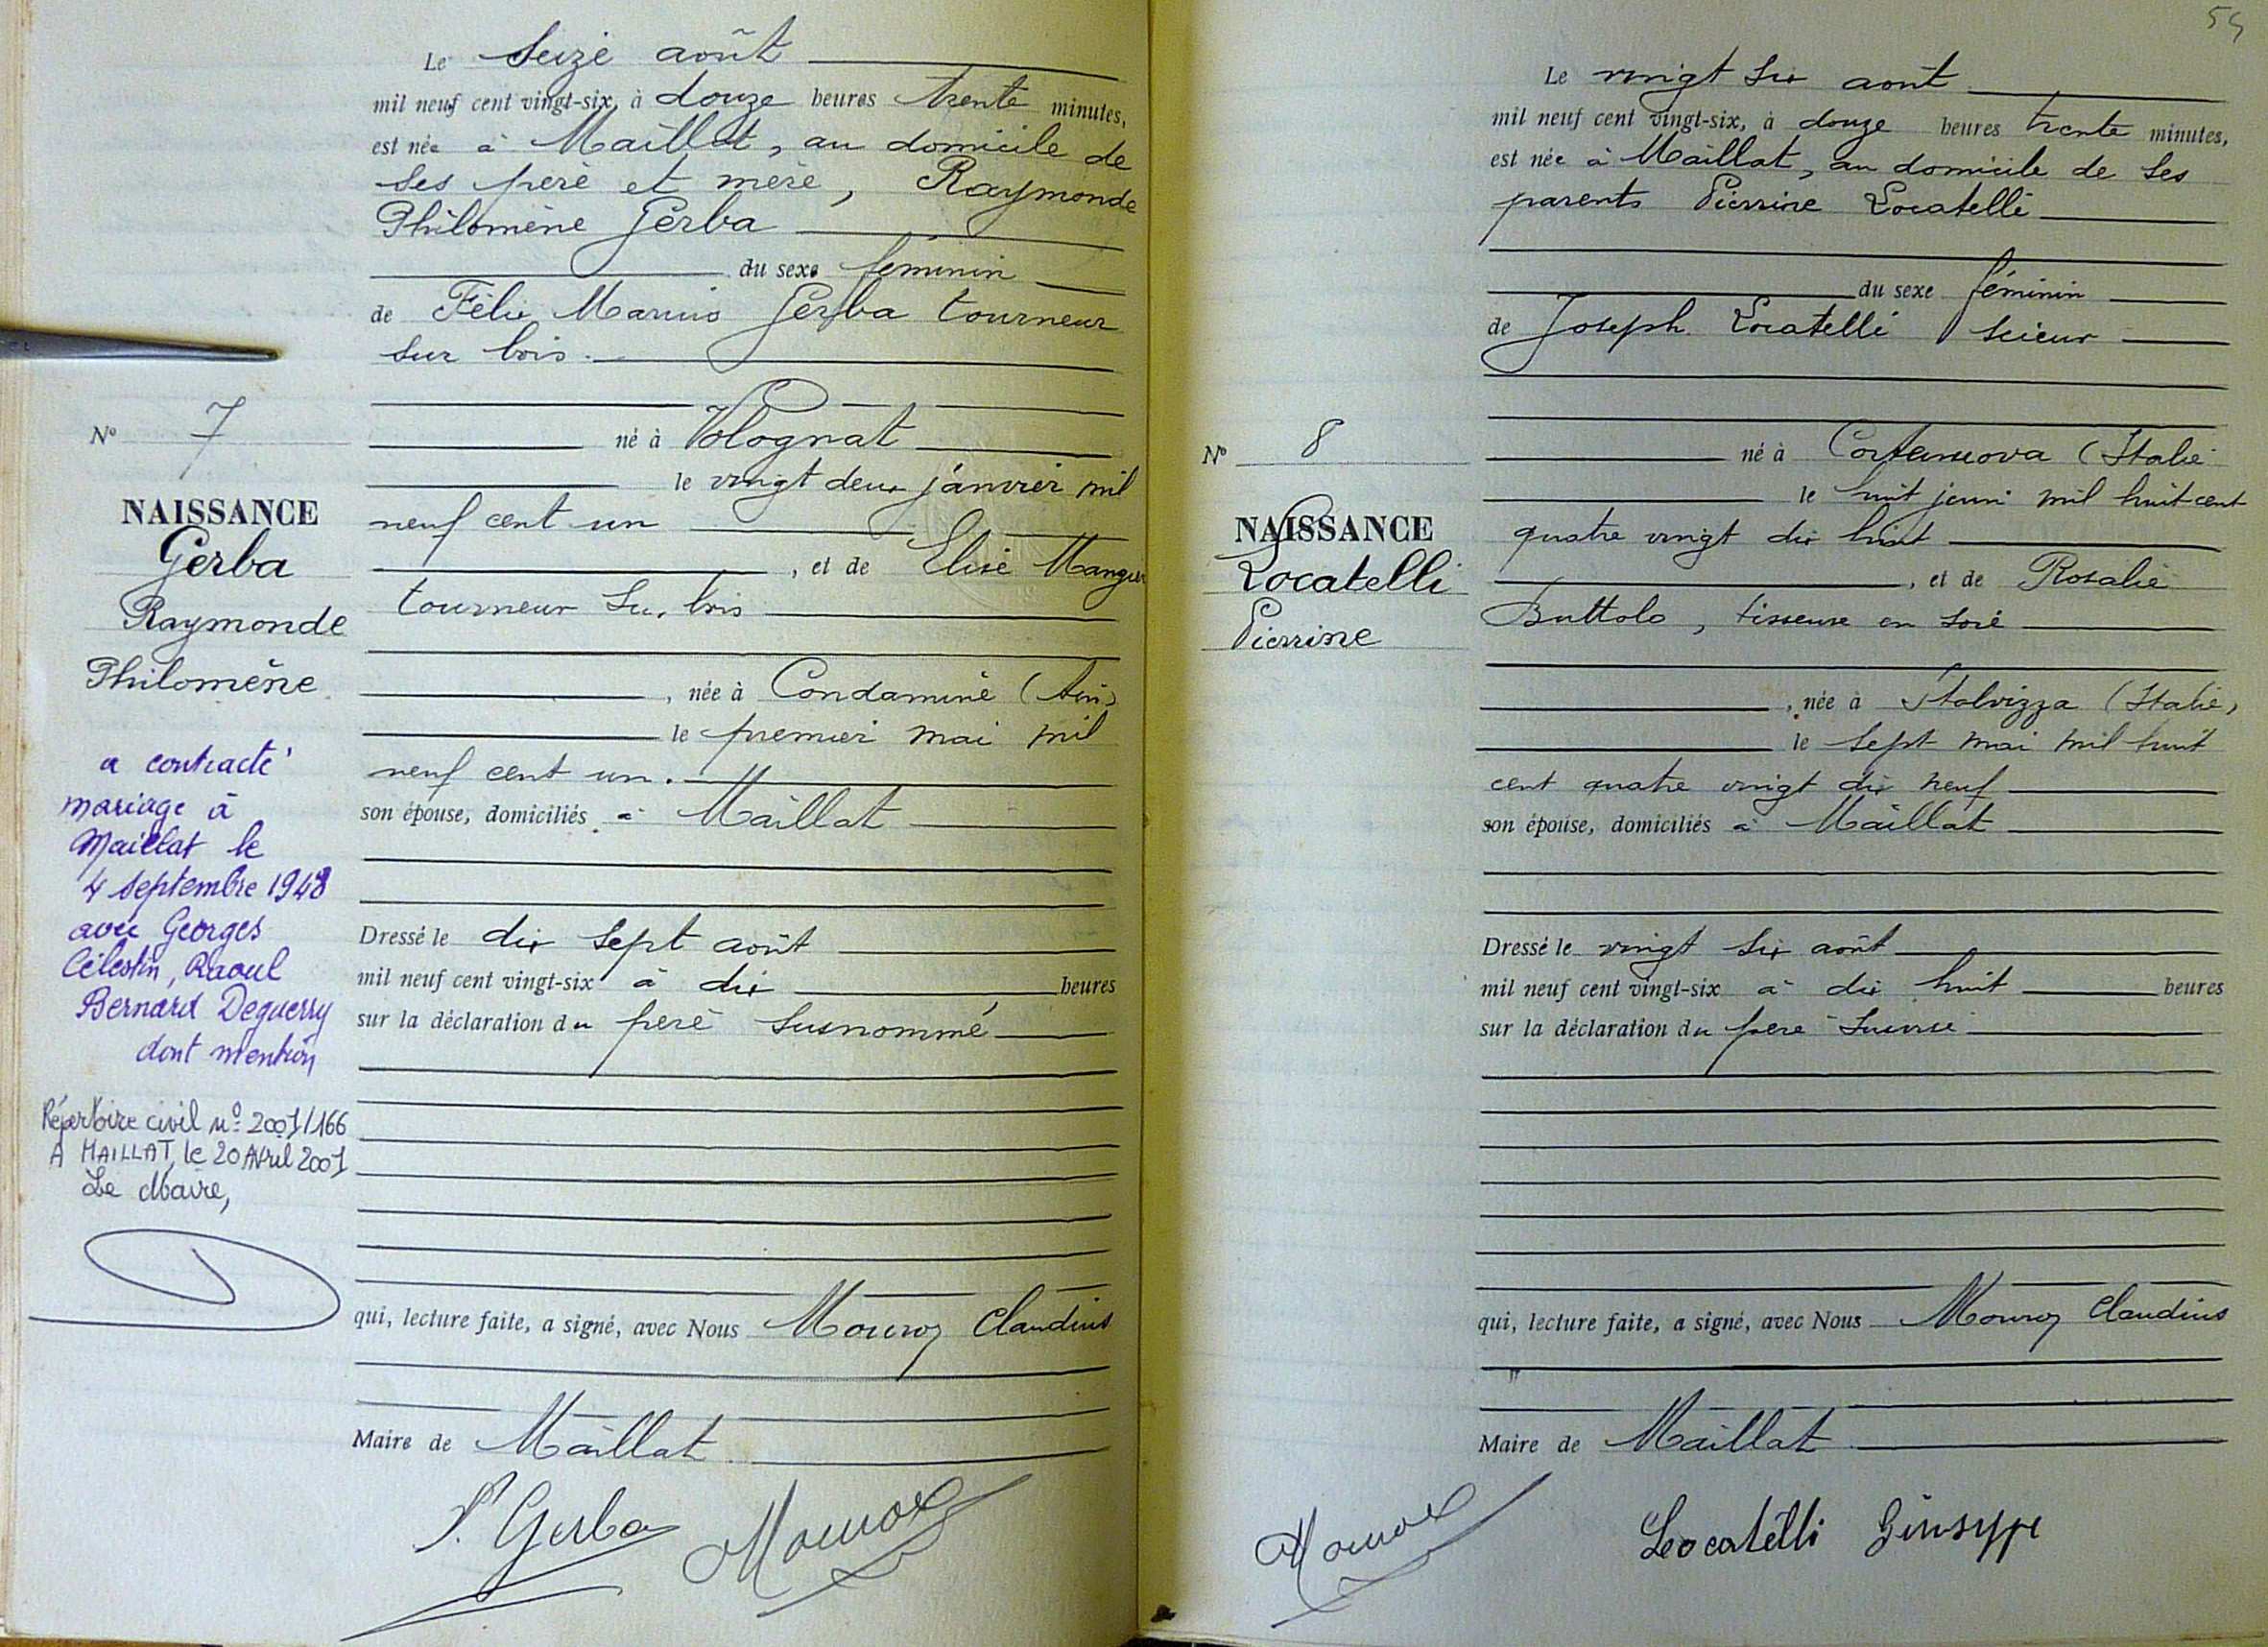 Le seize août
mil neuf cent vingt-six, à douze heures trente minutes,
est née à Maillat, au domicile de
ses père et mère, Raymonde
Philomène Gerba
du sexe féminin
de Félix Marius Gerba tourneur
sur bois.
né à Volognat
le vingt deux janvier mil
neuf cent un
, et de Elise Mangin
tourneur sur bois
, née à Condamine (Ain)
le premier mai mil
neuf cent un.
son épouse, domiciliés à Maillat
Dressé le dix sept août
mil neuf cent vingt-six à dix heures
sur la déclaration du père susnommé
qui, lecture faite, a signé, avec Nous Mouroz Claudius
Maire de Maillat
Gerba Mouroz
N° 7
NAISSANCE
Gerba
Raymonde
Philomène
a contracté
mariage à
Maillat le
4 septembre 1948
avec Georges
Célestin, Raoul
Bernard Deguerry
dont mention
Répertoire civil n° 2001/166
A MAILLAT, le 20 Avril 2001
Le Maire,
54
Le vingt six août
mil neuf cent vingt-six, à douze heures trente minutes,
est née à Maillat, au domicile de ses
parents Pierrine Locatelli
du sexe féminin
de Joseph Locatelli scieur
né à Cortenuova (Italie
le huit juin mil huit cent
quatre vingt dix huit
, et de Rosalie
Buttolo, tisseuse en soie
, née à Stolvizza (Italie)
le sept mai mil huit
cent quatre vingt dix neuf
son épouse, domiciliés à Maillat
Dressé le vingt six août
mil neuf cent vingt-six à dix huit heures
sur la déclaration du père
qui, lecture faite, a signé, avec Nous Mouroz Claudius
Maire de Maillat
Mouroz Locatelli Giuseppe
N° 8
NAISSANCE
Locatelli
Pierrine